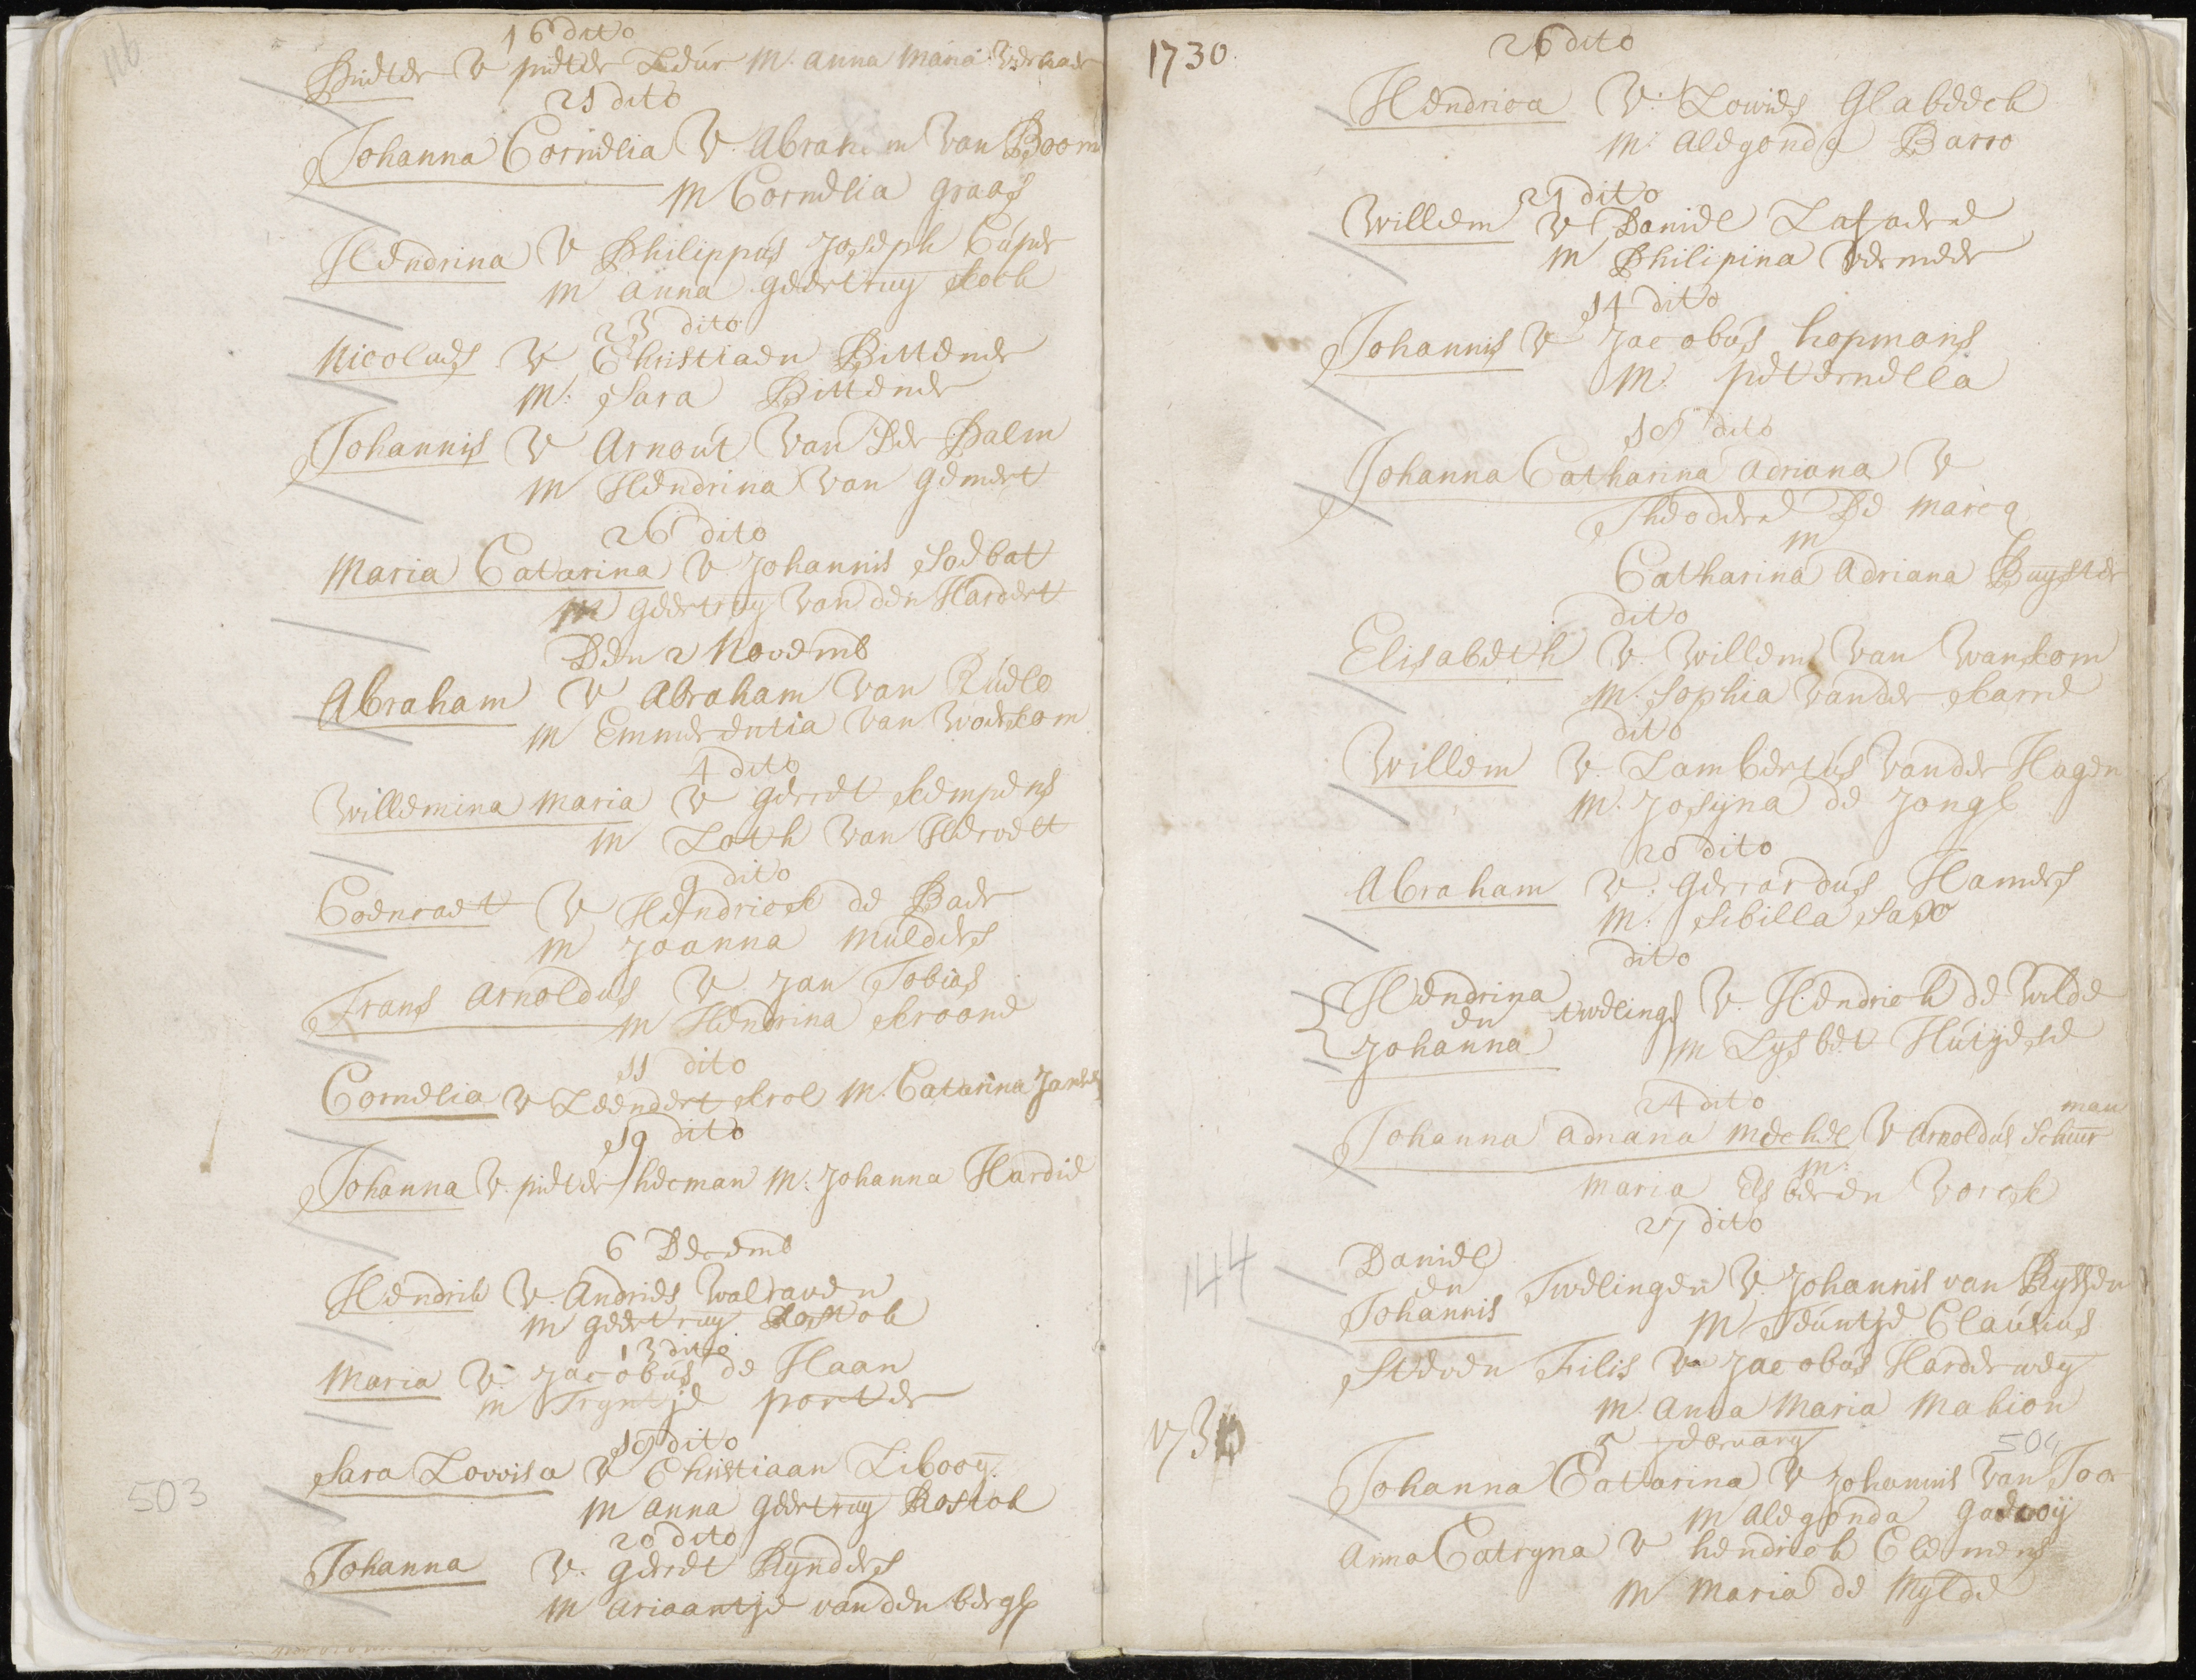 116
16 dito
Pieter V pieter Leur M. anna maria
21 dito
Johanna Cornelia V. Abraham van Boom
M Cornelia graaf
Hendrina V Philippus Joseph Cuper
M anna geertruy koch
23 dito
Nicolaes V Christiaen Bittener
M: Sara Bittener
Johannis V Arnout van Der Palm
M Hendrina van gemert
26 dito
Maria Catarina V Johannis Soebat
M geertruy van den Hardert
Den 2 Novemb
Abraham V Abraham van
M Emmerentia van Woerkom
4 dito
Willemina Maria V gerret kempens
M Loth van
9 dito
Coenraet V Hendrick de Baer
M Joanna Mulders
Frans Arnoldus V. Jan Tobias
M Hendrina kroone
11 dito
Cornelia V Leendert krol M. Catarina
19 dito
Johanna V. pieter heeman M: Johanna Hardie
6 Decemb
Hendrik V. Andries Walraven
M geertruy Rostok
13 dito
Maria V. Jacobus de Haan
M Tryntje porter
19 dito
Sara Lovvisa V Christiaan Libooy
M anna geertruy Rostok
20 dito
Johanna V. gerret Rynders
M Ariaantje van den bergh
503
1730.
26 dito
Hendrica V: Lowies Glabeeck
M: Aldegonda Barro
Willem V Daniel
M Philipina Vermeer
14 dito
Johannis V Jacobus hopmans
M. peternella
19 dito
Johanna Catharina Adriana V
Theodore De Marcq
M
Catharina Adriana Buyster
dito
Elisabeth V. Willem van Wanrom
M. Sophia van der karre
dito
Willem V. Lambertus van der Hagen
M. Josyna de Jongh
20 dito
Abraham V. gerrardus Hamers
M: Sibilla Saxo
dito
Hendrina
en twelings V. Hendrick de Wilde
Johanna M Lysbet
24 dito
Johanna Adriana Mechel V Arnoldus Schuurman
M:
Maria Elsberen Vorck
27 dito
Daniel
en Twelingen V. Johannis van Ryssen
Johannis M Teuntje Clausius
Steven Filis V Jacobus Harderwey
M. Anna Maria Mabion
1731
5 February
504
Johanna Catarina V Johannis van
M Aldegonda
Anna Catryna V hendrick Clemens
M Maria de Mylde
144